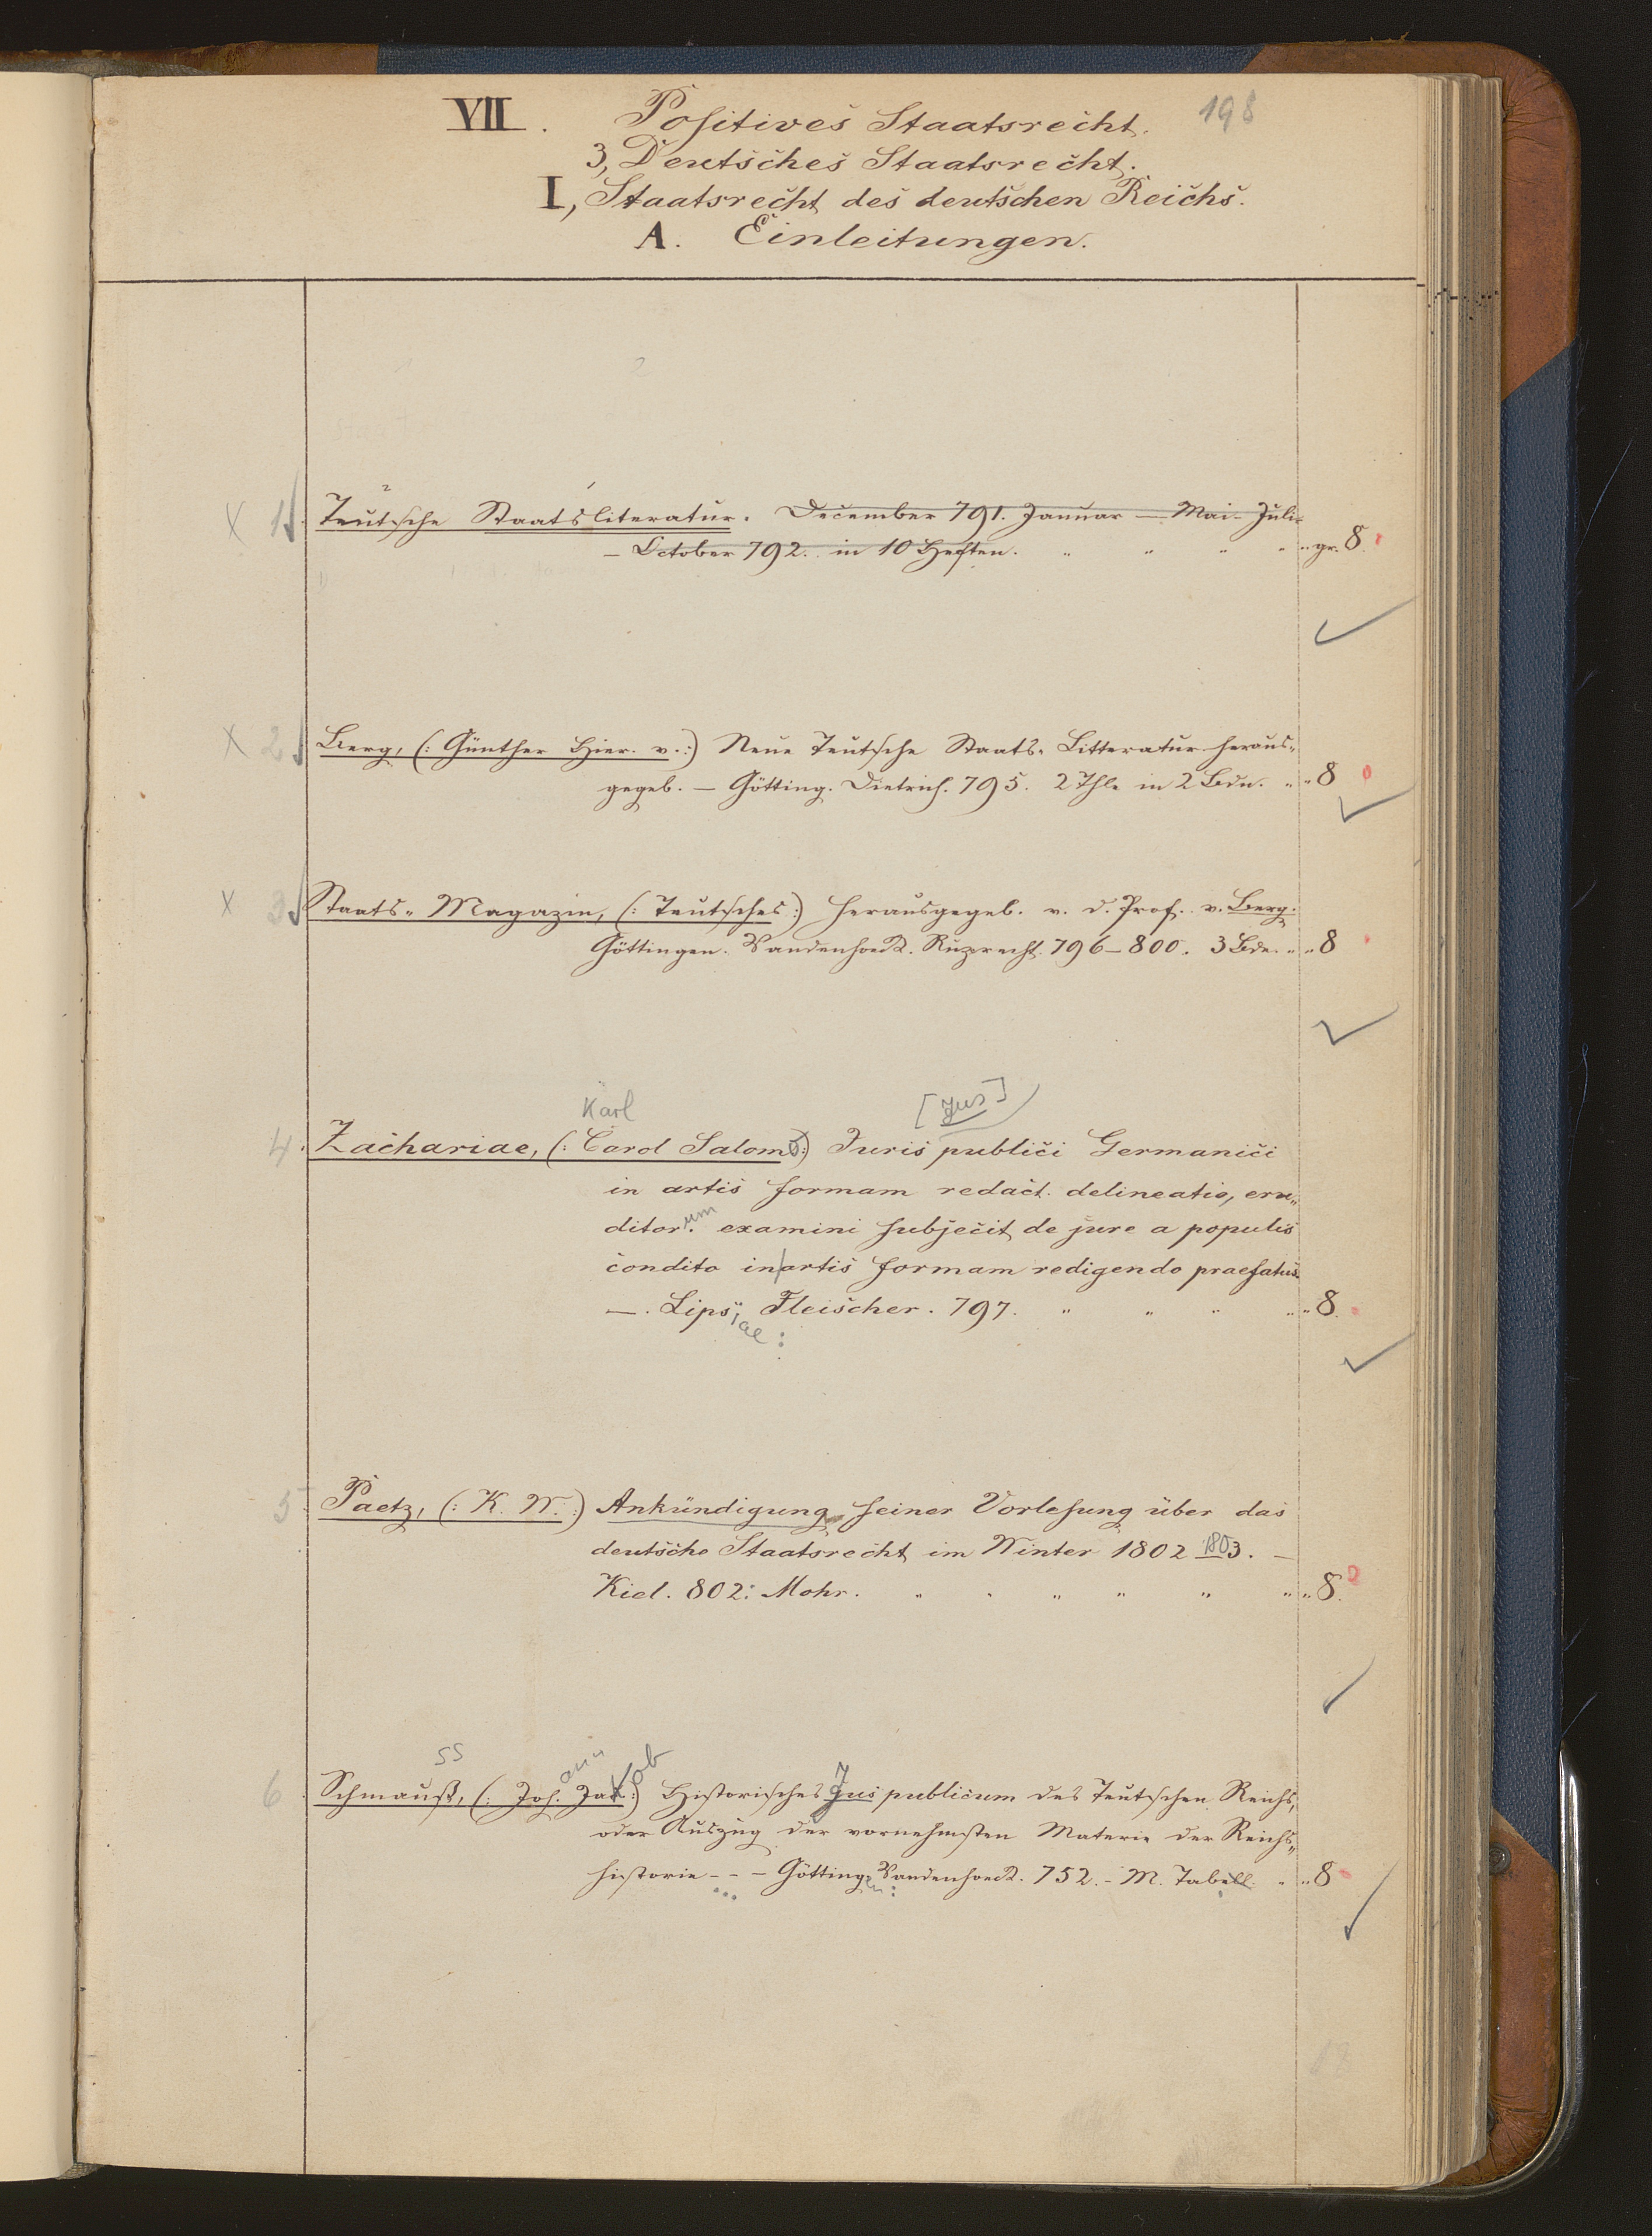 VII. Positives Staatsrecht. 198
3, Deutsches Staatsrecht.
I, Staatsrecht des deutschen Reichs.
A. Einleitungen.
X 1. Teutsche Staatsliteratur. December 791. Januar — Mai - Juli
— October 792. in 10 Heften. " " " " " gr. 8.
X 2. Berg, (: Günther Heinr. v. :) Neue Teutsche Staats-Litteratur heraus-
gegeb. — Götting. Dietrich. 795. 2 Thle in 2 Bdn. " " 8
X 3. Staats-Magazin, (: Teutsches :) herausgegeb. v. d. Prof. v. Berg.
Göttingen. Vandenhoeck. Ruprecht. 796–800. 3 Bde. " " 8
Karl [Jus]
4. Zachariae, (: Carol Salomo :) Juris publici Germanici
in artis formam redact. delineatio, eru-
ditorum. examini subjecit de jure a populis
condito in artis formam redigendo praefatus.
—. Lipsiae: Fleischer. 797. " " " " " 8.
5. Paetz, (: K. W. :) Ankündigung seiner Vorlesung über das
deutsche Staatsrecht im Winter 1802 1803. —
Kiel. 802: Mohr. " " " " " " " 8.
ss ann kob
6. Schmauß, (: Joh. Jak. :) Historisches Jus publicum des Teutschen Reichs,
oder Auszug der vornehmsten Materie der Reichs-
historie - - - Göttingen: Vandenhoeck. 752. - M. Tabell. " " 8